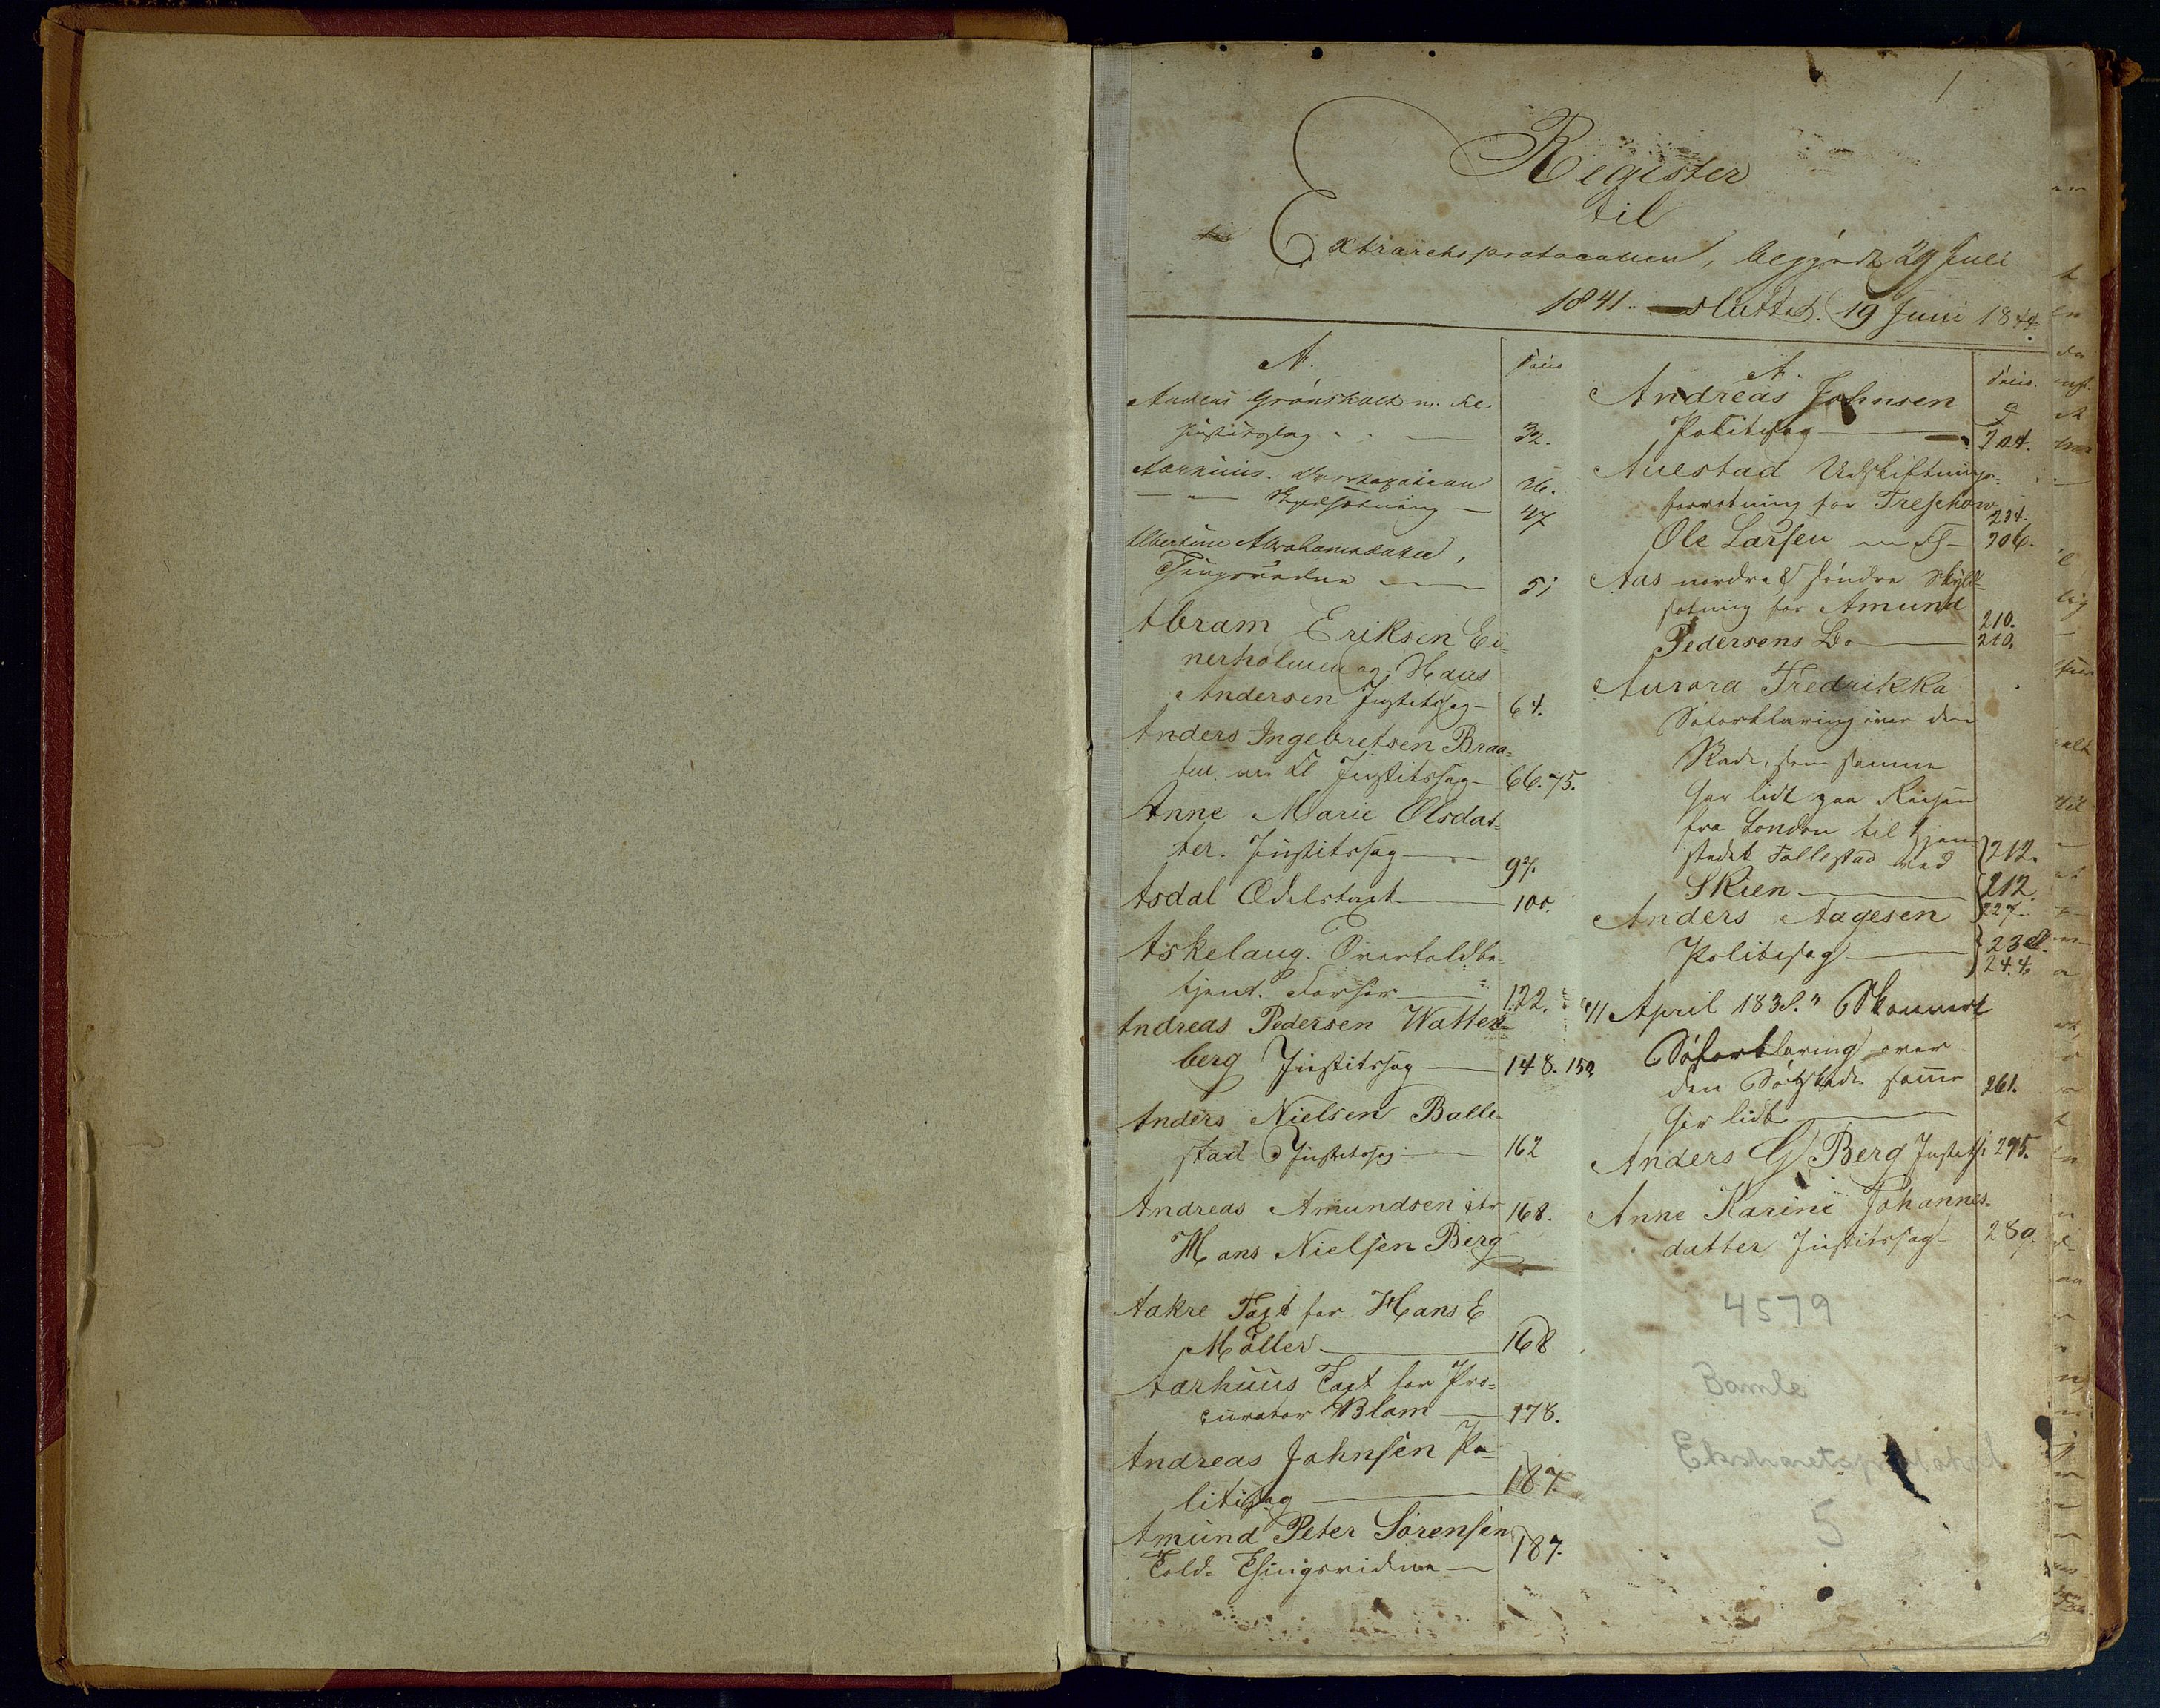 1
Register
til
Extraretsprotocollen, begyndt 29 Juli
1841. sluttet. 19 Juni 1844.
A.
Grønskalk m. fl.
Justitssag 32.
Aarhuus. 26.
— Skyldsætning — 47
Abrahamsdatter,
Thingsvidne — 51
Abram Eriksen Ei-
nerholmen og Hans
Andersen Justitssag — 64.
Anders Ingebretsen Braa-
ten m fl Justitssag — 66. 75.
Anne Marie Olsdat-
ter. Justitssag — 97.
Asdal Odelstaxt — 100.
Askelaug. Overtoldbe-
tjent. Forhør — 122.
Andreas Pedersen Watten-
berg Justitssag — 148. 150.
Anders Nielsen Balle-
stad Justitssag — 162
Andreas Amundsen ctr 168.
Hans Nielsen Berg
Aakre Taxt for Hans E
Møller — 168
Aarhuus Taxt for Pro-
curator Blom — 178.
Andreas Johnsen Po-
litisag — 187.
Amund Peter Sørensen
Told- Thingsvidne — 187.
A.
Andreas Johnsen
Politisag — 204.
Auestad Udskiftnings-
forretning for Treschow 234.
Ole Larsen — 206.
Aas nordre & søndre Skyld-
sætning for Amund 210.
Pedersens Bo — 210.
Aurora Fredrikka
Søforklaring over den
Skade, som samme
har lidt paa Reisen
fra London til Hjem-
stedet Follestad ved 212.
Skien — 212.
Anders Aagesen 227.
Politisag — 238.
244.
"11 April 1838." Skonnert
Søforklaring over
den Søskade samme 261.
har lidt —
Anders G Berg Justits: 295.
Anne Karine Johannes-
datter Justitssag — 289.
4579
Bamle
Ekstraretsprotokol
5